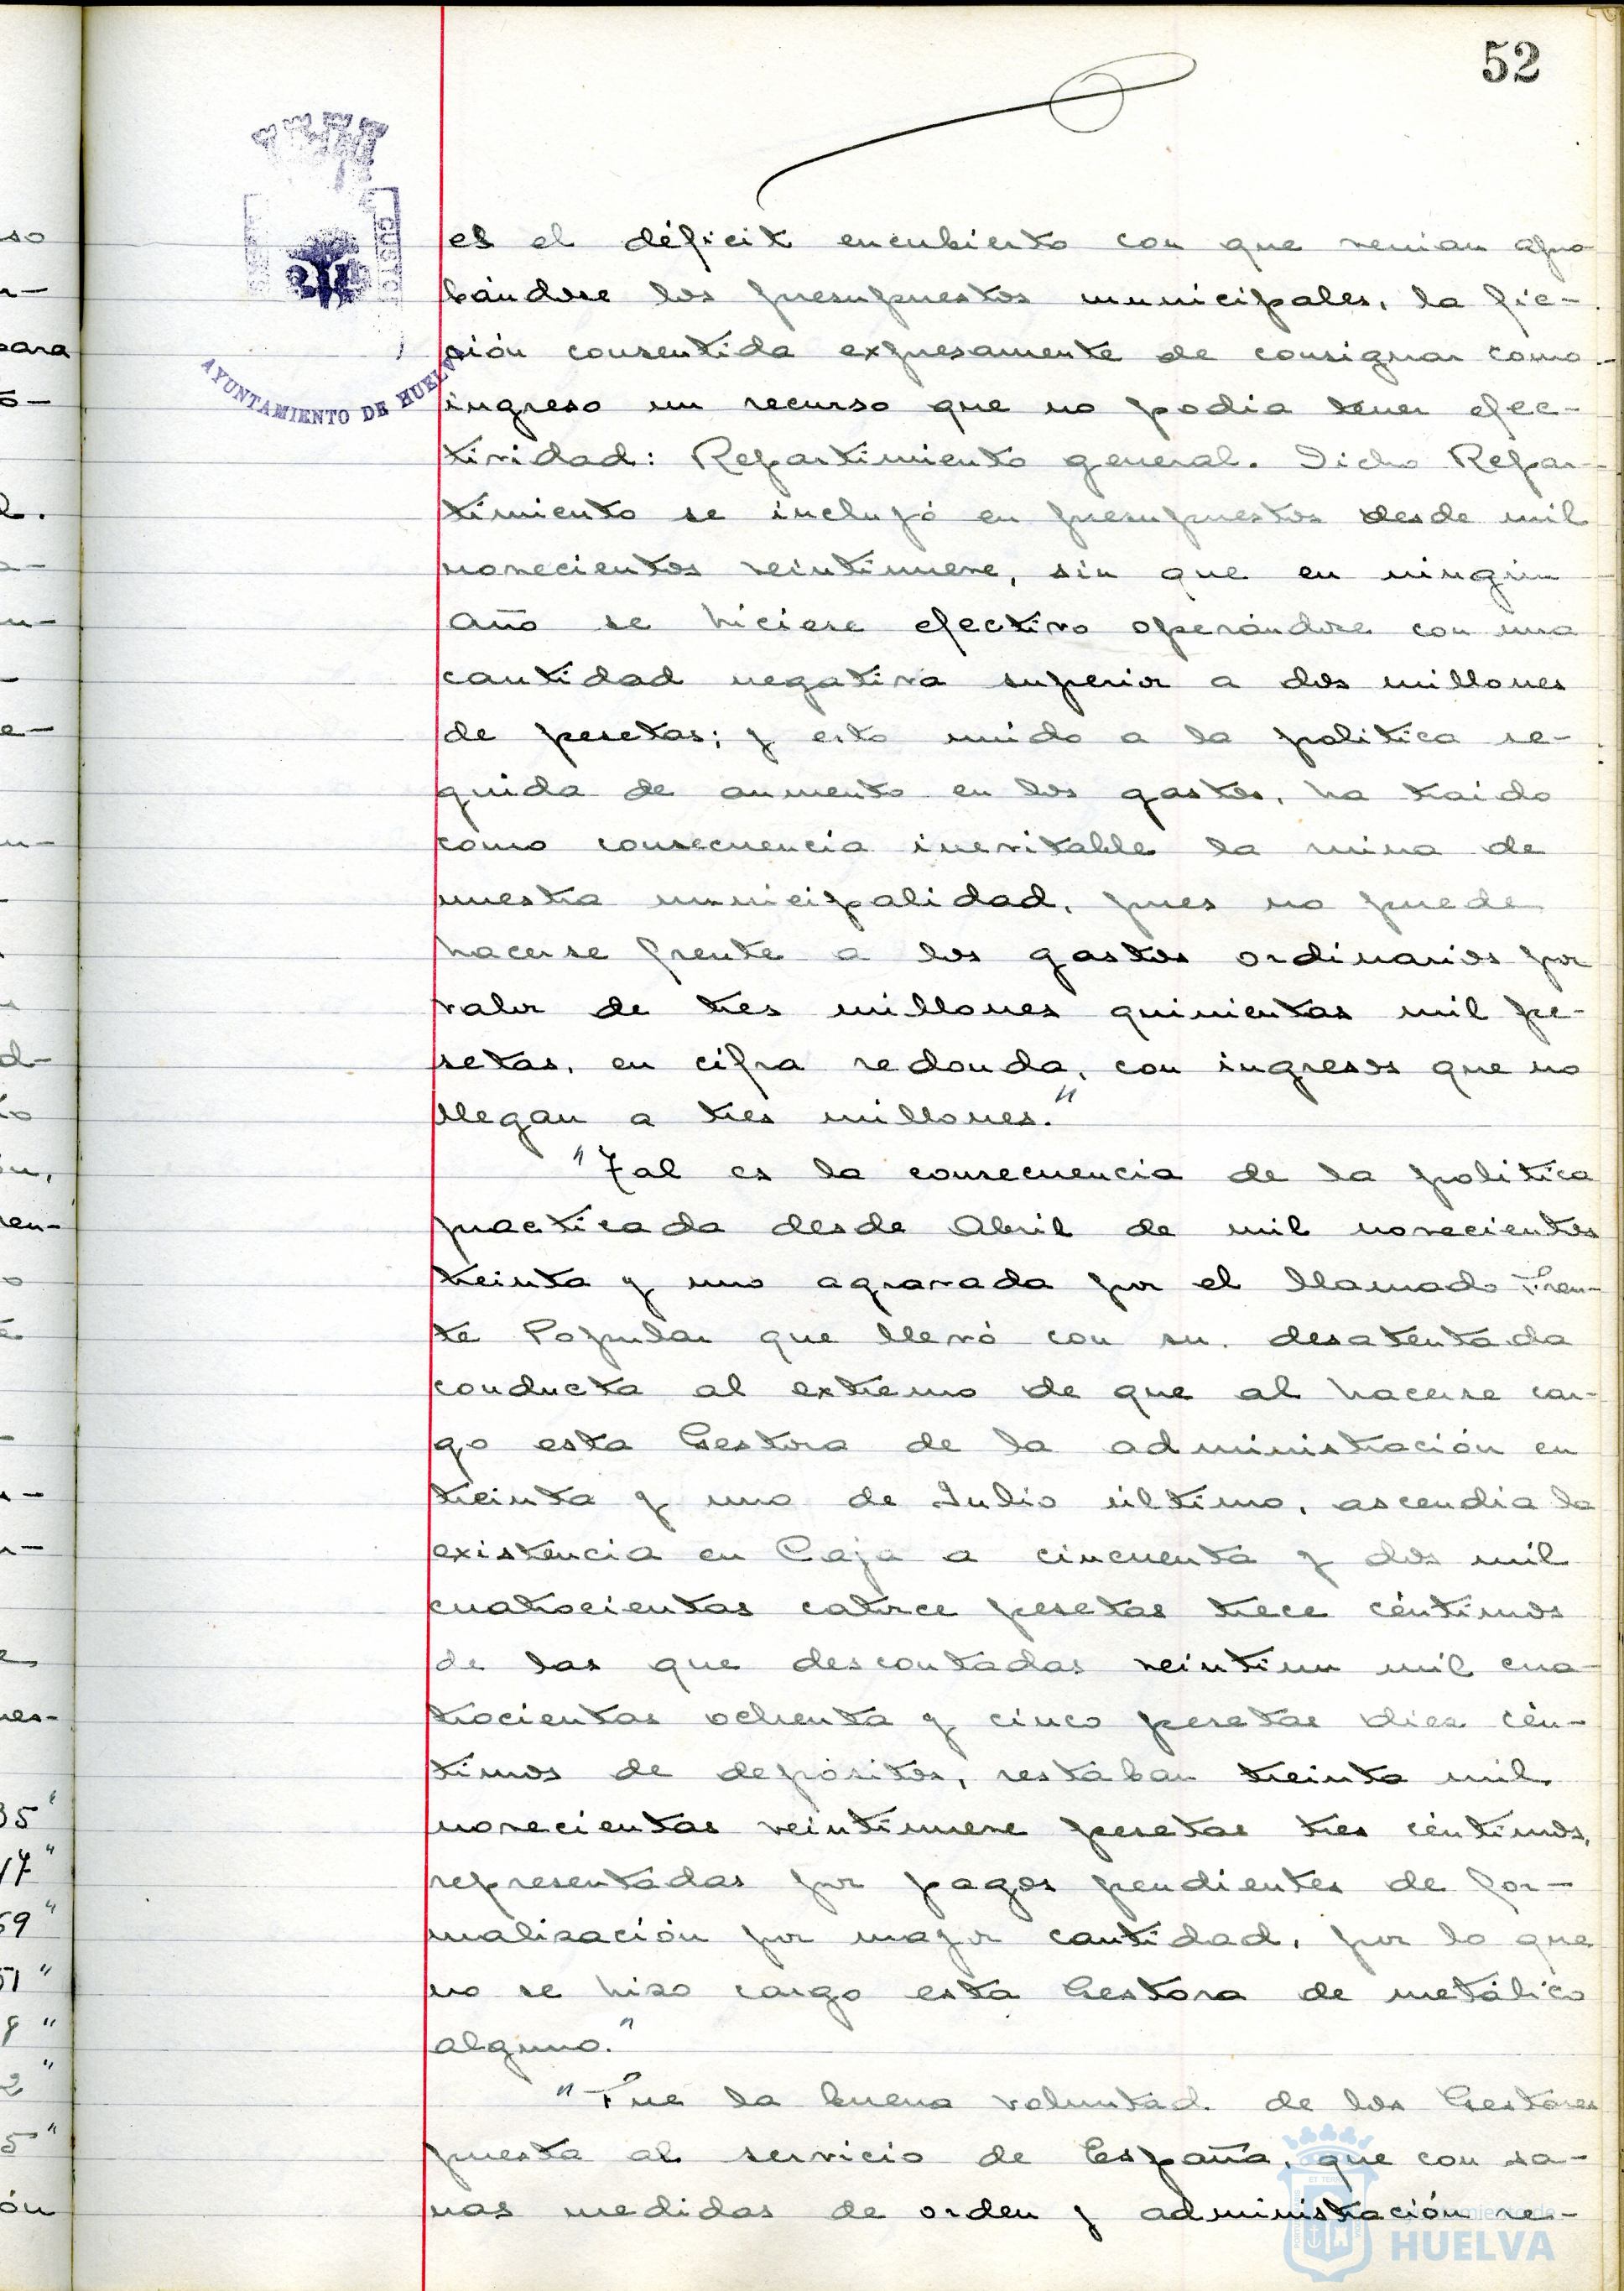 52
AYUNTAMIENTO DE HUELVA
es el déficit encubierto con que venian apro
bándose los presupuestos municipales, la fic-
ción consentida expresamente de consignar como
ingreso un recurso que no podia tener efec-
tividad: Repartimiento general. Dicho Repar-
timiento se incluyó en presupuestos desde mil
novecientos veintinueve, sin que en ningún
año se hiciese efectivo operándose con una
cantidad negativa superior a dos millones
de pesetas; y esto unido a la politica se-
guida de aumento en los gastos, ha traido
como consecuencia inevitable la ruina de
nuestra municipalidad, pues no puede
hacerse frente a los gastos ordinarios por
valor de tres millones quinientas mil pe-
setas, en cifra redonda, con ingresos que no
llegan a tres millones."
"Tal es la consecuencia de la politica
practicada desde Abril de mil novecientos
treinta y uno agravada por el llamado Fren-
te Popular que llevó con su desatentada
conducta al extremo de que al hacerse car-
go esta Gestora de la administración en
treinta y uno de Julio último, ascendia la
existencia en Caja a cincuenta y dos mil
cuatrocientas catorce pesetas trece céntimos
de las que descontadas veintiun mil cua-
trocientas ochenta y cinco pesetas diez cén-
timos de depósitos, restaban treinta mil
novecientas veintinueve pesetas tres céntimos,
representadas por pagos pendientes de for-
malización por mayor cantidad, por lo que
no se hizo cargo esta Gestora de metálico
alguno."
"Fue la buena voluntad de los Gestores
puesta al servicio de España, que con sa-
nas medidas de orden y administración re-
HUELVA
so
para
l.
d-
ón,
35"
17"
59"
51"
2"
5"
ón